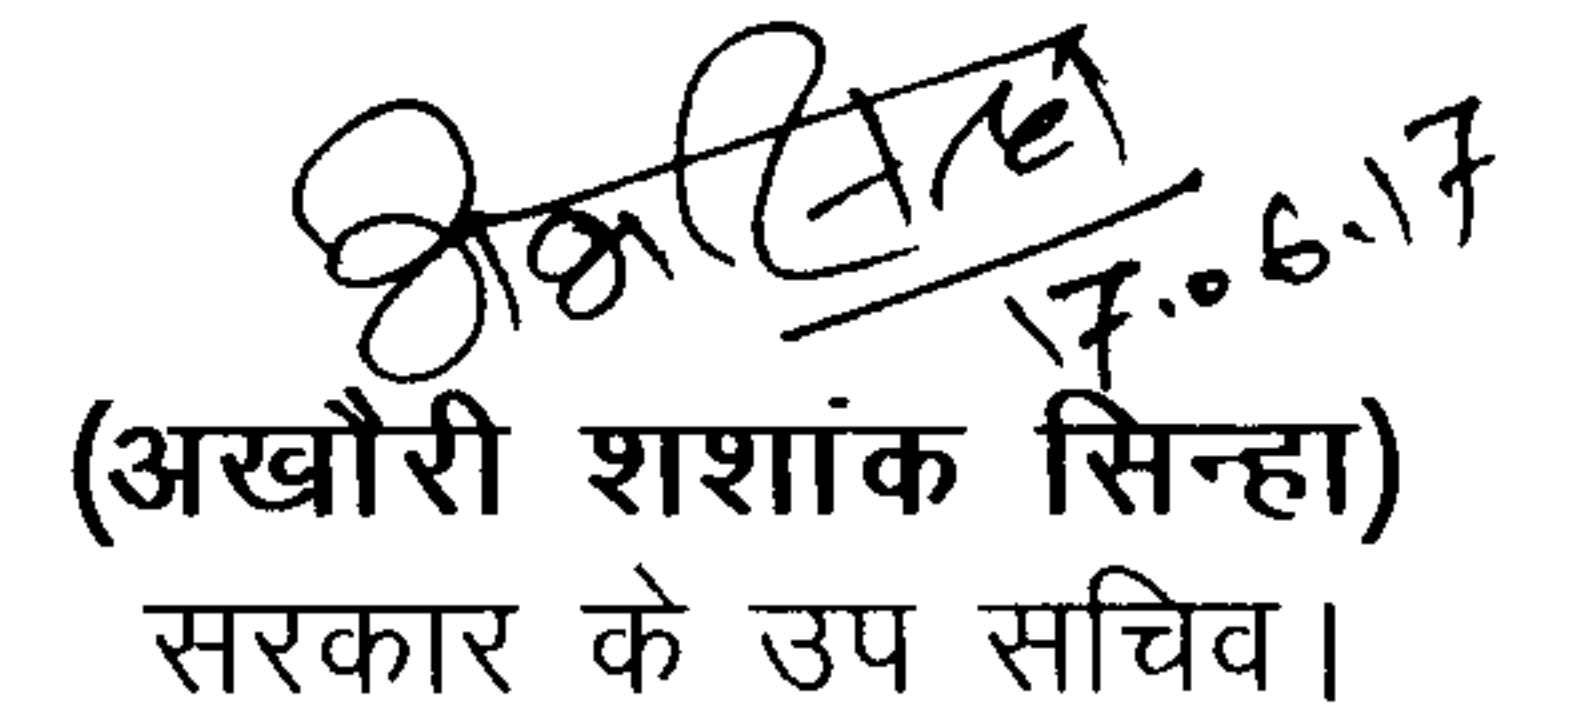 17.06.17
(अखौरी शशांक सिन्हा)
सरकार के उप सचिव।